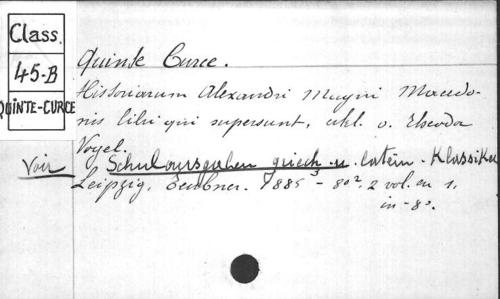 Class.
45-B
QUINTE-CURCE
Quinte Curce.
Historiarum Alexandri Magni Macedo-
nis libri qui supersunt, erkl. v. Theodor
Vogel.
Voir Schulausgaben griech. u. latein. Klassiker
Leipzig, Teubner. 1885³-80², 2 vol. en 1,
in-8°.